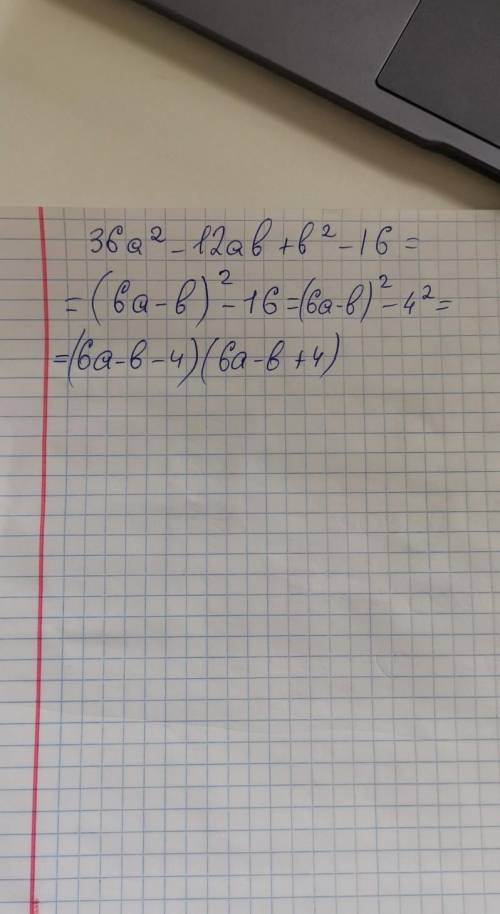 36a² - 12ab + b² - 16 =
= (6a - b)² - 16 = (6a - b)² - 4² =
= (6a - b - 4)(6a - b + 4)